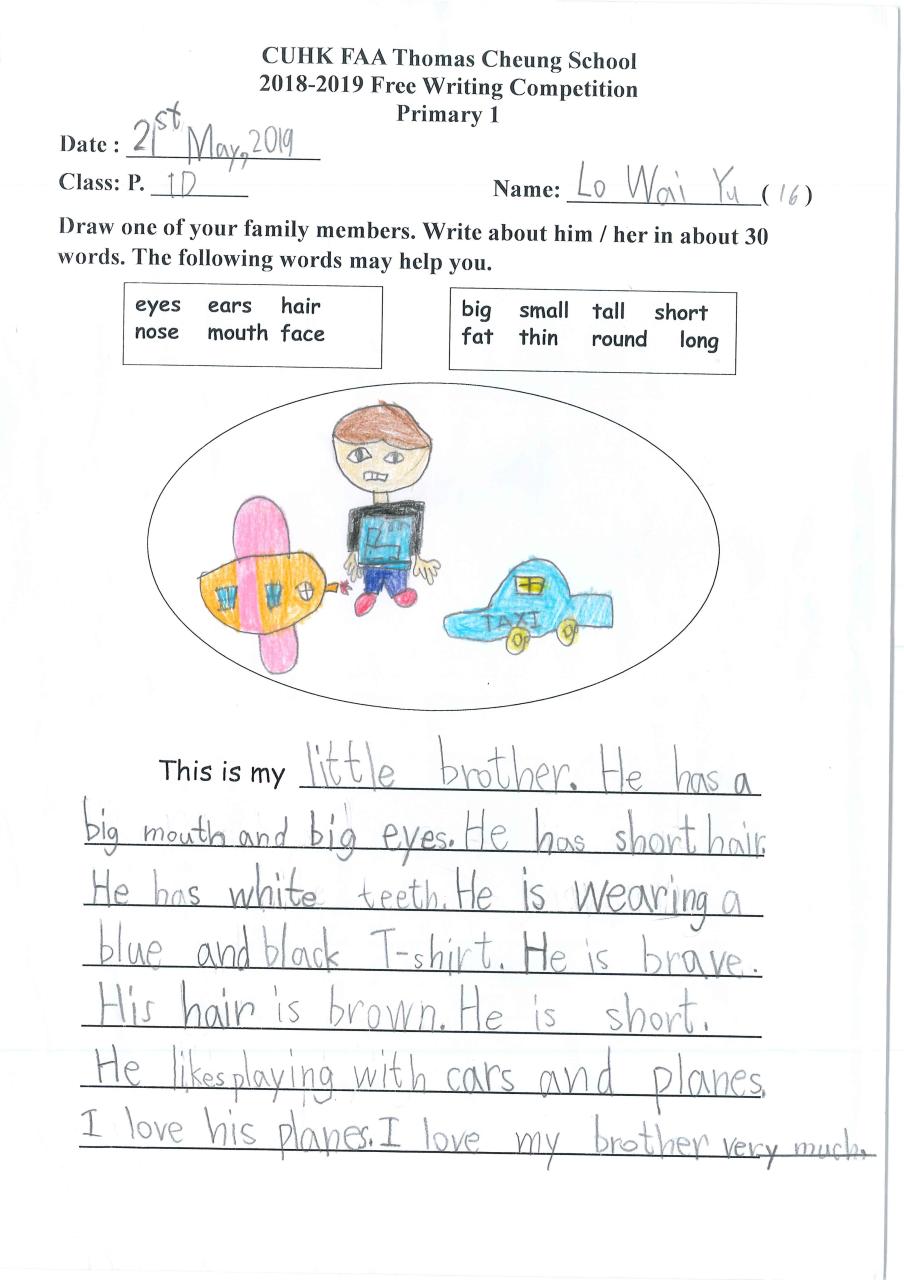 CUHK FAA Thomas Cheung School
2018-2019 Free Writing Competition
Primary 1
Date : 21st May, 2019
Class: P. 1D Name: Lo Wai Yu (16)
Draw one of your family members. Write about him / her in about 30
words. The following words may help you.
eyes ears hair
nose mouth face
big small tall short
fat thin round long
TAXI
This is my little brother. He has a
big mouth and big eyes. He has short hair.
He has white teeth. He is wearing a
blue and black T-shirt. He is brave.
His hair is brown. He is short.
He likes playing with cars and planes.
I love his planes. I love my brother very much.